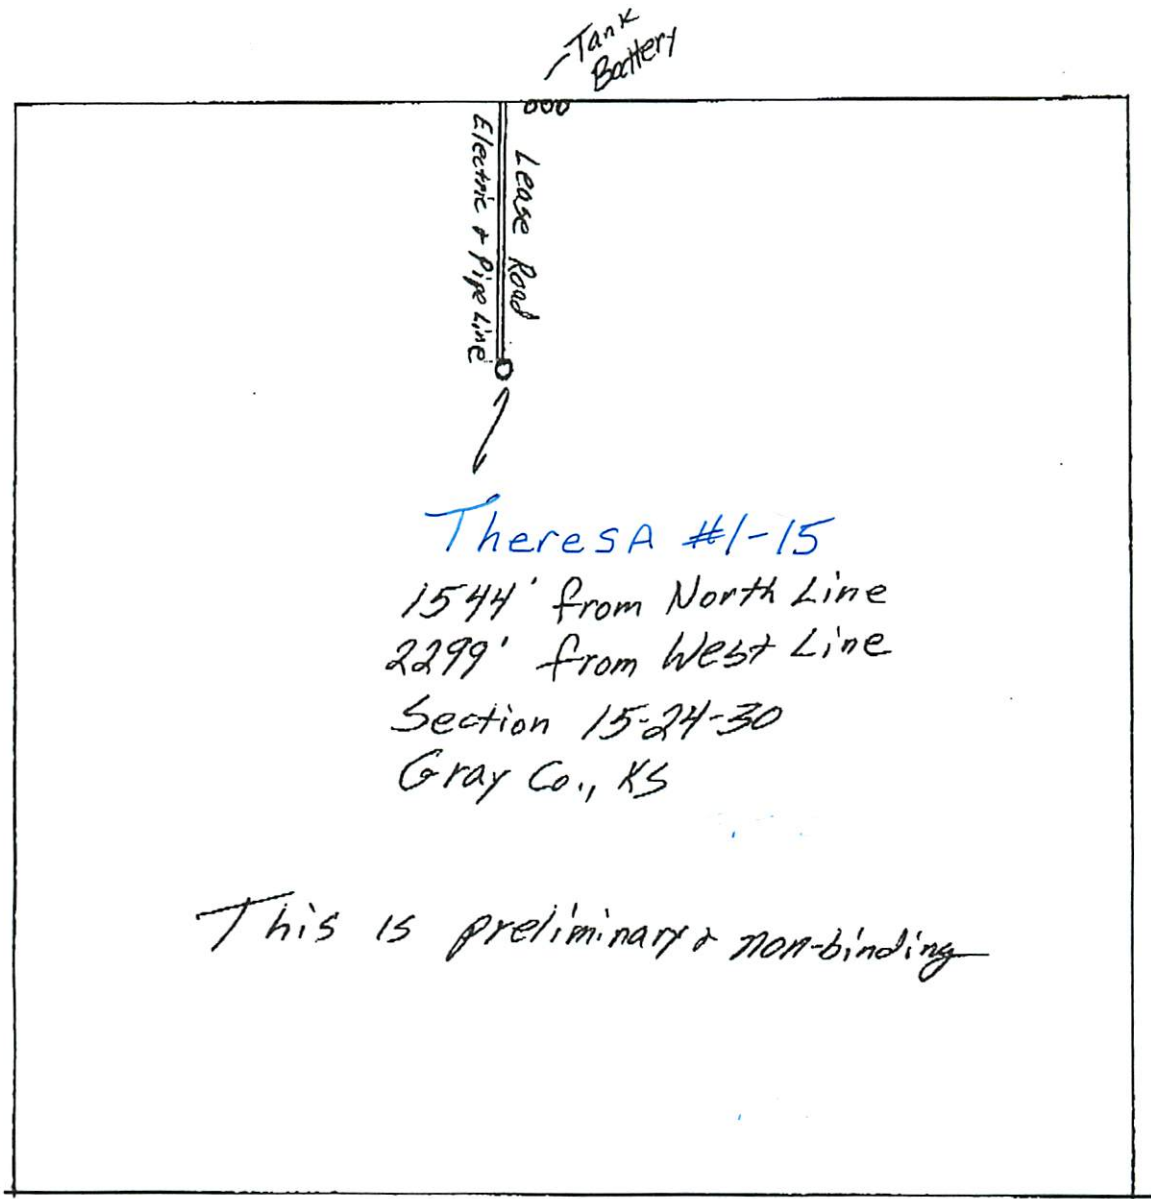 Tank
Battery
Lease Road
Electric & Pipe Line
TheresA #1-15
1544' from North Line
2299' from West Line
Section 15-24-30
Gray Co., KS
This is preliminary & non-binding